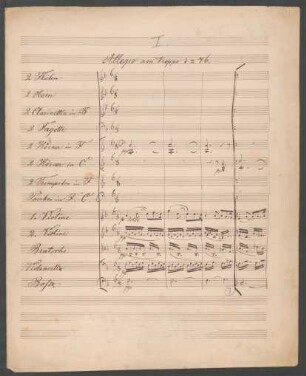 I
Allegro non troppo ♩ = 76.
2 Flöten
2 Oboen
2 Clarinetten in B
2 Fagotte
2 Hörner in F
2 Hörner in C
2 Trompeten in F
Pauken in F. C
1. Violine
2. Violine
Bratsche
Violoncelle
Bässe